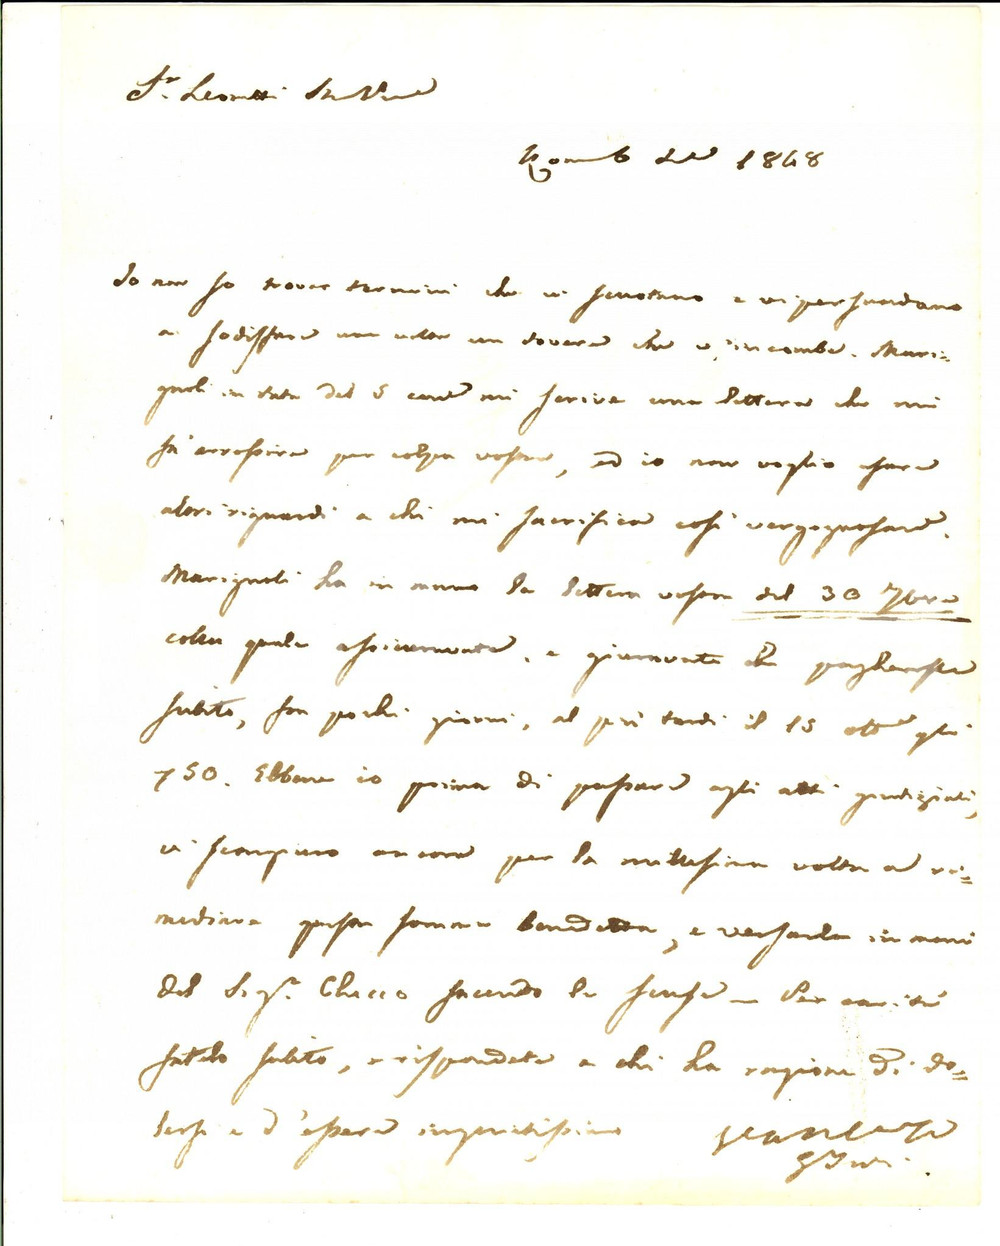 Sr. Leonetti
Roma 6 1848
Io non so trovar termini che vi scuotano e vi persuadano
a sodisfare una volta un dovere che v'incombe. Mari=
gnoli in data del 5 corre mi scrive una lettera che mi
fa arrossire per colpa vostra, ed io non voglio usare
altri riguardi a chi mi sacrifica così vergognosame.
Marignoli ha in mano la lettera vostra del 30 7bre
colla quale assicuravate, e giuravate che paghereste
subito, fra pochi giorni, al più tardi il 15 otte gli
750. Ebbene io prima di passare agli atti giudiziali,
vi scongiuro ancora per la millesima volta a ri=
mediare questa somma benedetta, e versarla in mani
del Sigr. Checco facendo le scuse _ Per carità
fatelo subito, e rispondete a chi ha ragione di do=
lersi e d'essere inquietissimo